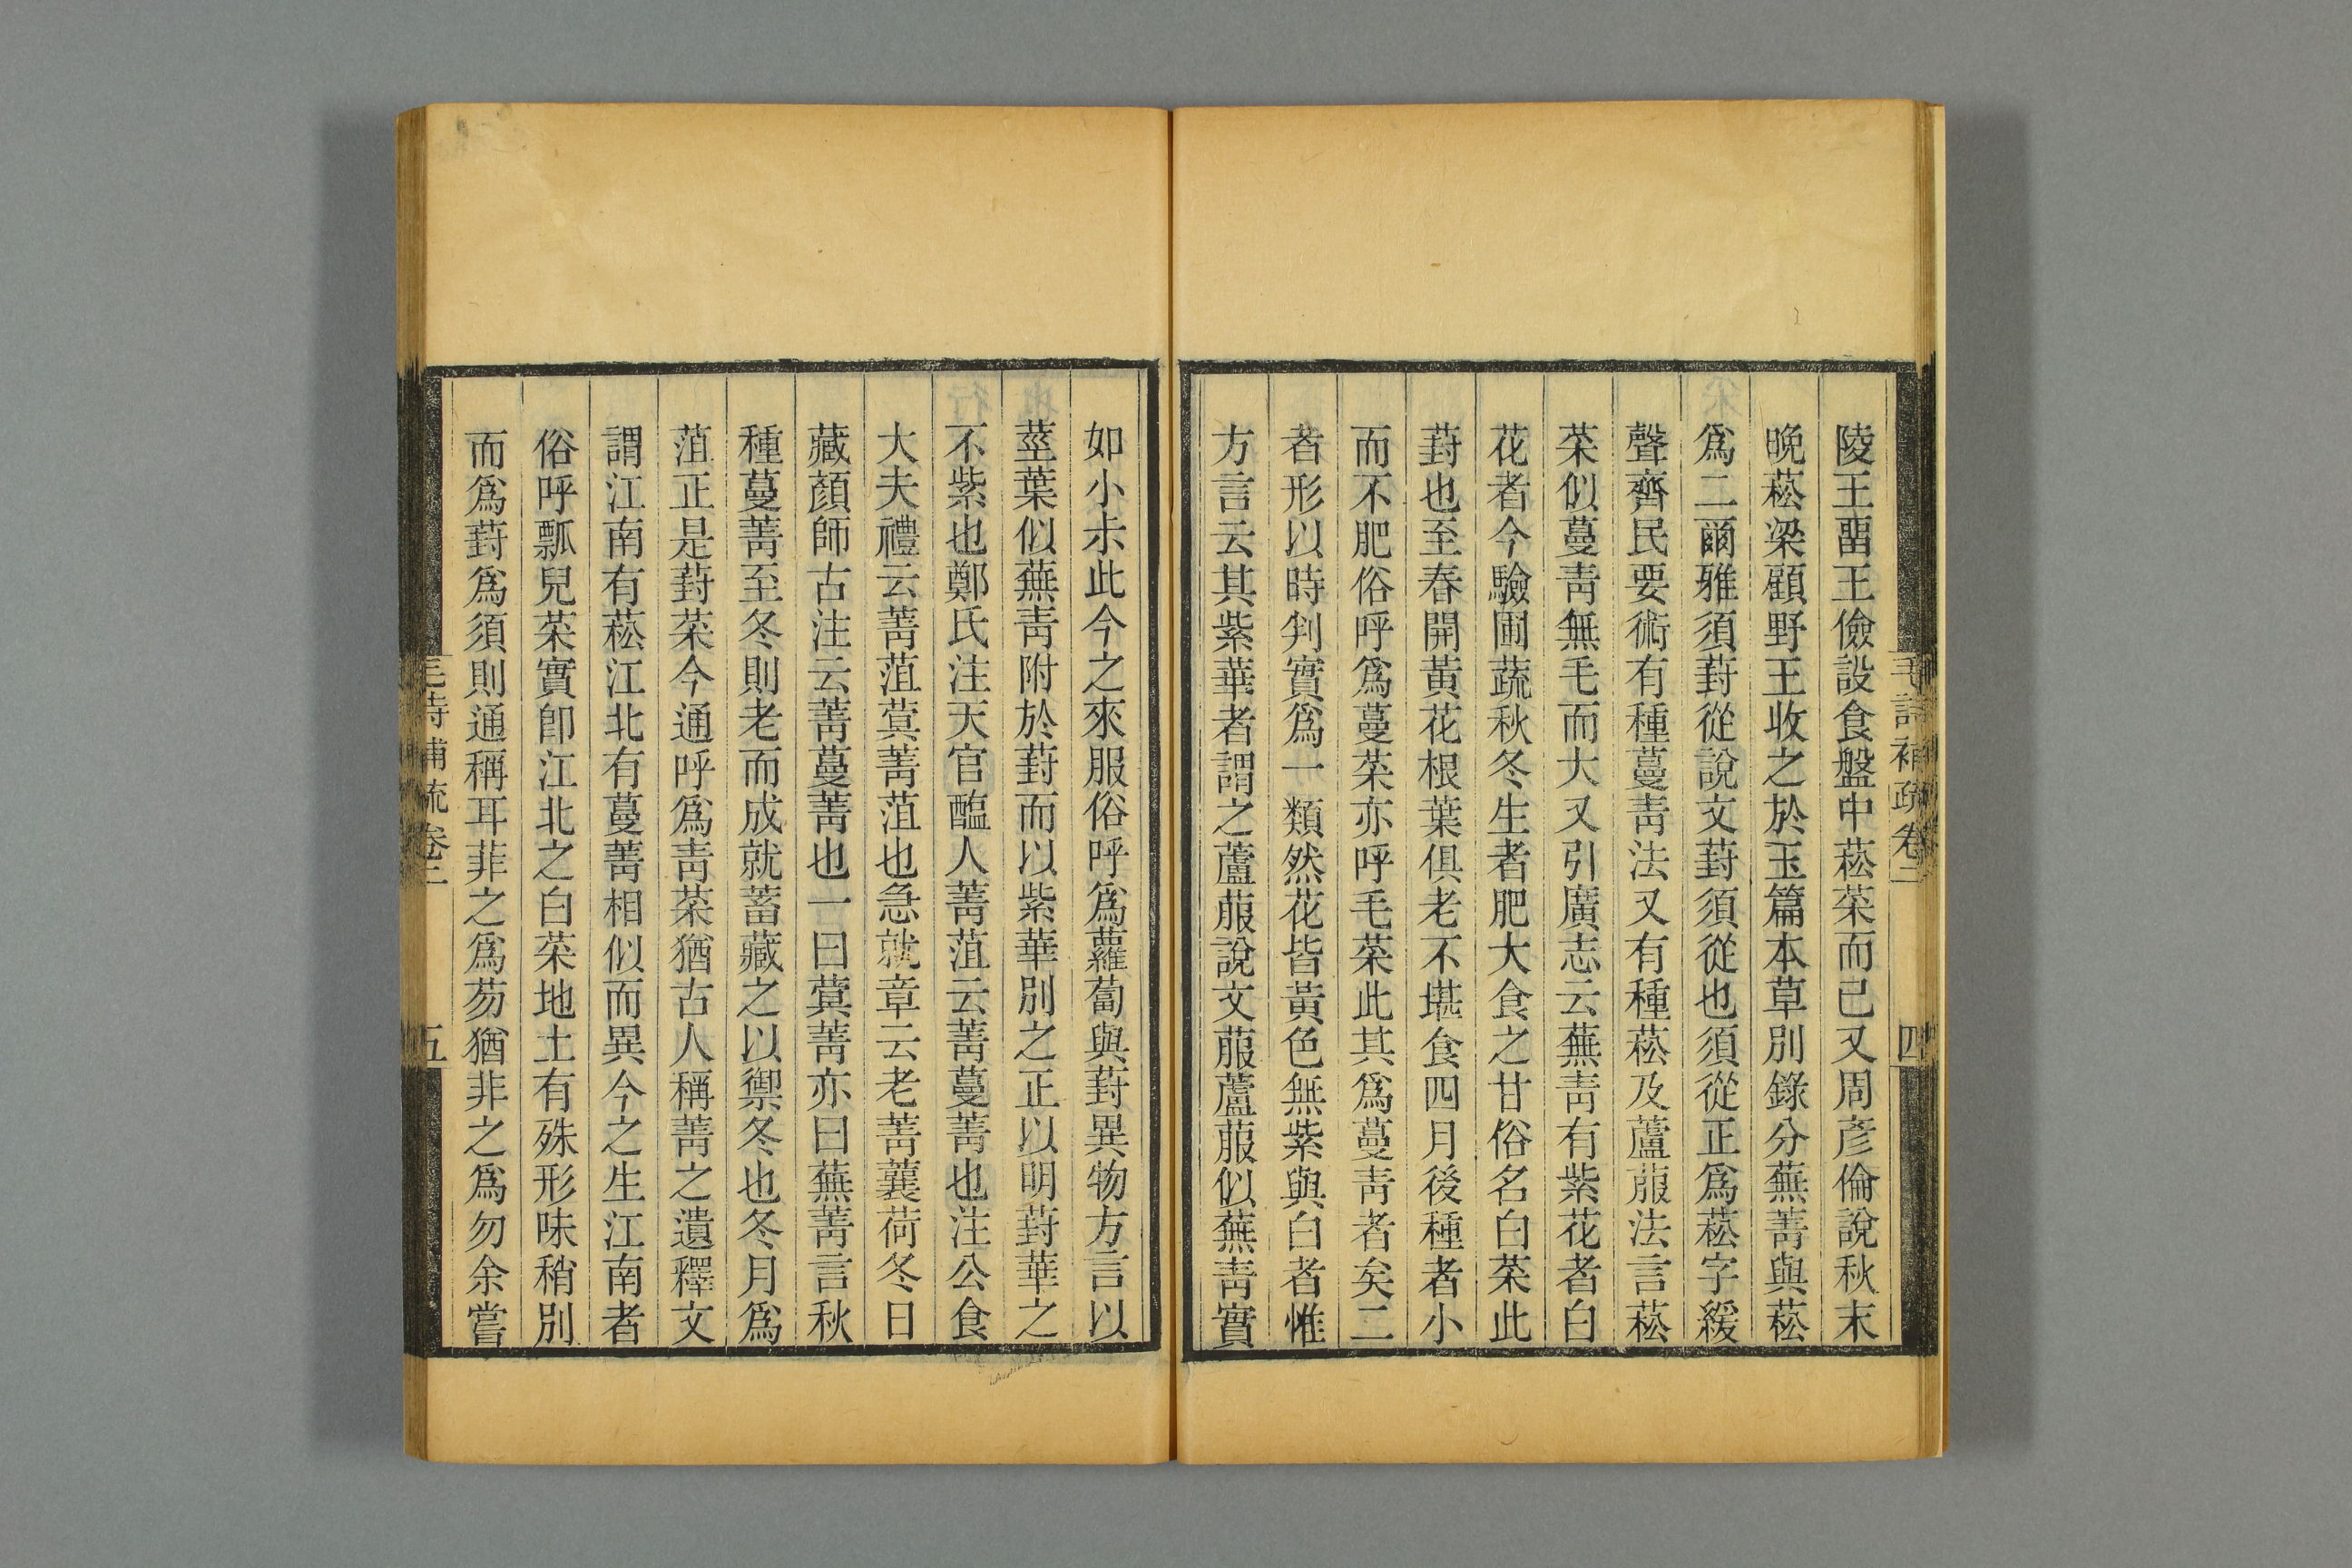 毛詩補疏卷二
四
陵王畱王儉設食盤中菘菜而已又周彦倫說秋末
晚菘梁顧野王收之於玉篇本草別錄分蕪菁與菘
爲二爾雅須葑從說文葑須從也須從正爲菘字緩
聲齊民要術有種蔓菁法又有種菘及蘆菔法言菘
菜似蔓菁無毛而大又引廣志云蕪菁有紫花者白
花者今驗圃蔬秋冬生者肥大食之甘俗名白菜此
葑也至春開黃花根葉俱老不堪食四月後種者小
而不肥俗呼爲蔓菜亦呼毛菜此其爲蔓菁者矣二
者形以時判實爲一類然花皆黃色無紫與白者惟
方言云其紫華者謂之蘆菔說文菔蘆菔似蕪菁實
如小尗此今之來服俗呼爲蘿蔔與葑異物方言以
莖葉似蕪菁附於葑而以紫華別之正以明葑華之
不紫也鄭氏注天官醢人菁菹云菁蔓菁也注公食
大夫禮云菁菹蓂菁菹也急就章云老菁蘘荷冬日
藏顏師古注云菁蔓菁也一曰蓂菁亦曰蕪菁言秋
種蔓菁至冬則老而成就蓄藏之以禦冬也冬月爲
菹正是葑菜今通呼爲青菜猶古人稱菁之遺釋文
謂江南有菘江北有蔓菁相似而異今之生江南者
俗呼瓢兒菜實卽江北之白菜地土有殊形味稍別
而爲葑爲須則通稱耳菲之爲芴猶非之爲勿余嘗
毛詩補疏卷二
五